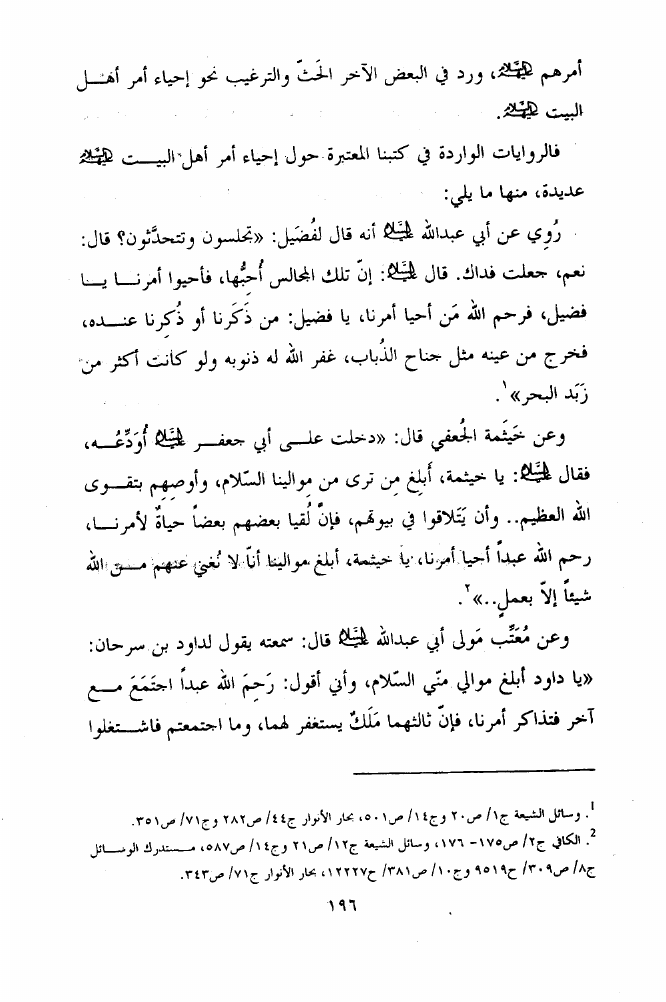 أمرهم عليهم السلام، ورد في البعض الآخر الحَثّ والترغيب نحو إحياء أمر أهل
البيت عليهم السلام.
فالروايات الواردة في كتبنا المعتبرة حول إحياء أمر أهل البيت عليهم السلام
عديدة، منها ما يلي:
رُوِي عن أبي عبدالله عليه السلام أنه قال لفُضَيل: «تجلسون وتتحدَّثون؟ قال:
نعم، جعلت فداك. قال عليه السلام: إنّ تلك المجالس أُحِبُّها، فأحيوا أمرنا يا
فضيل، فرحم الله مَن أحيا أمرنا، يا فضيل: من ذَكَرنا أو ذُكِرنا عنده،
فخرج من عينه مثل جناح الذُباب، غفر الله له ذنوبه ولو كانت أكثر من
زَبَد البحر»١.
وعن خَيثَمة الجُعفي قال: «دخلت على أبي جعفر عليه السلام أُوَدِّعُه،
فقال عليه السلام: يا خيثمة، أَبلِغ مِن ترى من موالينا السّلام، وأوصِهِم بتقوى
الله العظيم.. وأن يَتَلاقوا في بيوتهم، فإنَّ لُقيا بعضهم بعضاً حياةٌ لأمرنا،
رحم الله عبداً أحيا أمرنا، يا خيثمة، أبلغ موالينا أنّا لا نُغني عنهم من الله
شيئاً إلاّ بعملٍ..»٢.
وعن مُعَتِّب مَولى أبي عبدالله عليه السلام قال: سمعته يقول لداود بن سرحان:
«يا داود أبلغ موالي منّي السّلام، وأني أقول: رَحِمَ الله عبداً اجتَمَعَ مع
آخر فتذاكر أمرنا، فإنّ ثالثهما مَلَكٌ يستغفر لهما، وما اجتمعتم فاشتغلوا
1. وسائل الشيعة ج١/ ص٢٠ وج١٤/ ص٥٠١، بحار الأنوار ج٤٤/ ص٢٨٢ وج٧١/ ص٣٥١.
2. الكافي ج٢/ ص١٧٥- ١٧٦، وسائل الشيعة ج١٢/ ص٢١ وج١٤/ ص٥٨٧، مستدرك الوسائل
ج٨/ ص٣٠٩/ ح٩٥١٩ وج١٠/ ص٣٨١/ ح١٢٢٢٧، بحار الأنوار ج٧١/ ص٣٤٣.
١٩٦